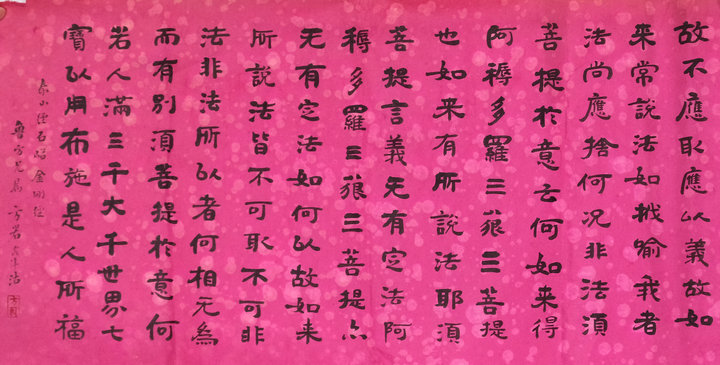 故不應取應以義故如
來常說法如栰喻我者
法尚應捨何況非法須
菩提於意云何如來得
阿耨多羅三藐三菩提
也如来有所說法耶須
菩提言義无有定法阿
耨多羅三藐三菩提亦
无有定法如何以故如来
所說法皆不可取不可非
法非法所以者何相无為
而有別須菩提於意何
若人滿三千大千世界七
寶以用布施是人所福
泰山經石峪金剛經